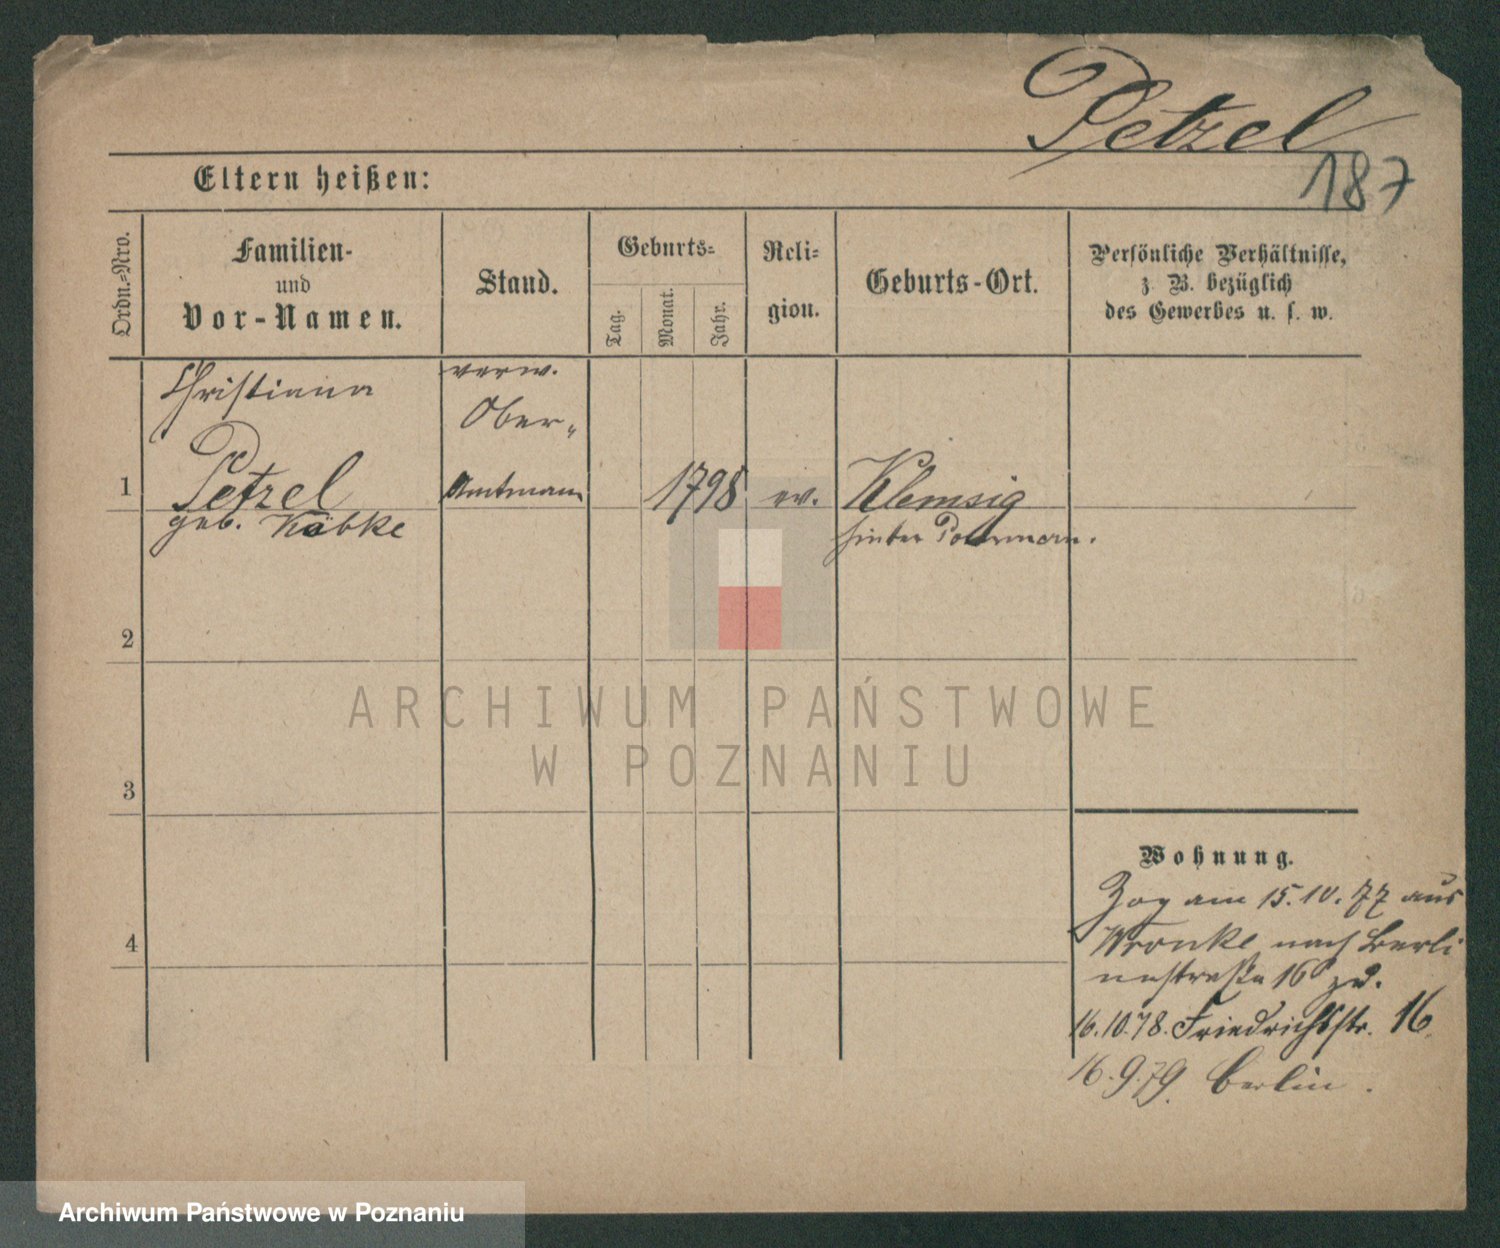 Petzel
187
Eltern heißen:
Ordn.=Nro.
Familien-
und
Vor-Namen.
Stand.
Geburts=
Tag.
Monat.
Jahr.
Reli=
gion.
Geburts-Ort.
Persönliche Verhältnisse,
z. B. bezüglich
des Gewerbes u. s. w.
1
Christiana
Petzel
geb. Käbke
verw.
Ober=
Amtmann
1798
ev.
Klemsig
hinter
2
3
4
Wohnung.
Zog am 15.10.77 aus
Wronke nach Berli
nerstraße 16 zu.
16.10.78. Friedrichsstr. 16.
16.9.79. Berlin.
ARCHIWUM PAŃSTWOWE
W POZNANIU
Archiwum Państwowe w Poznaniu